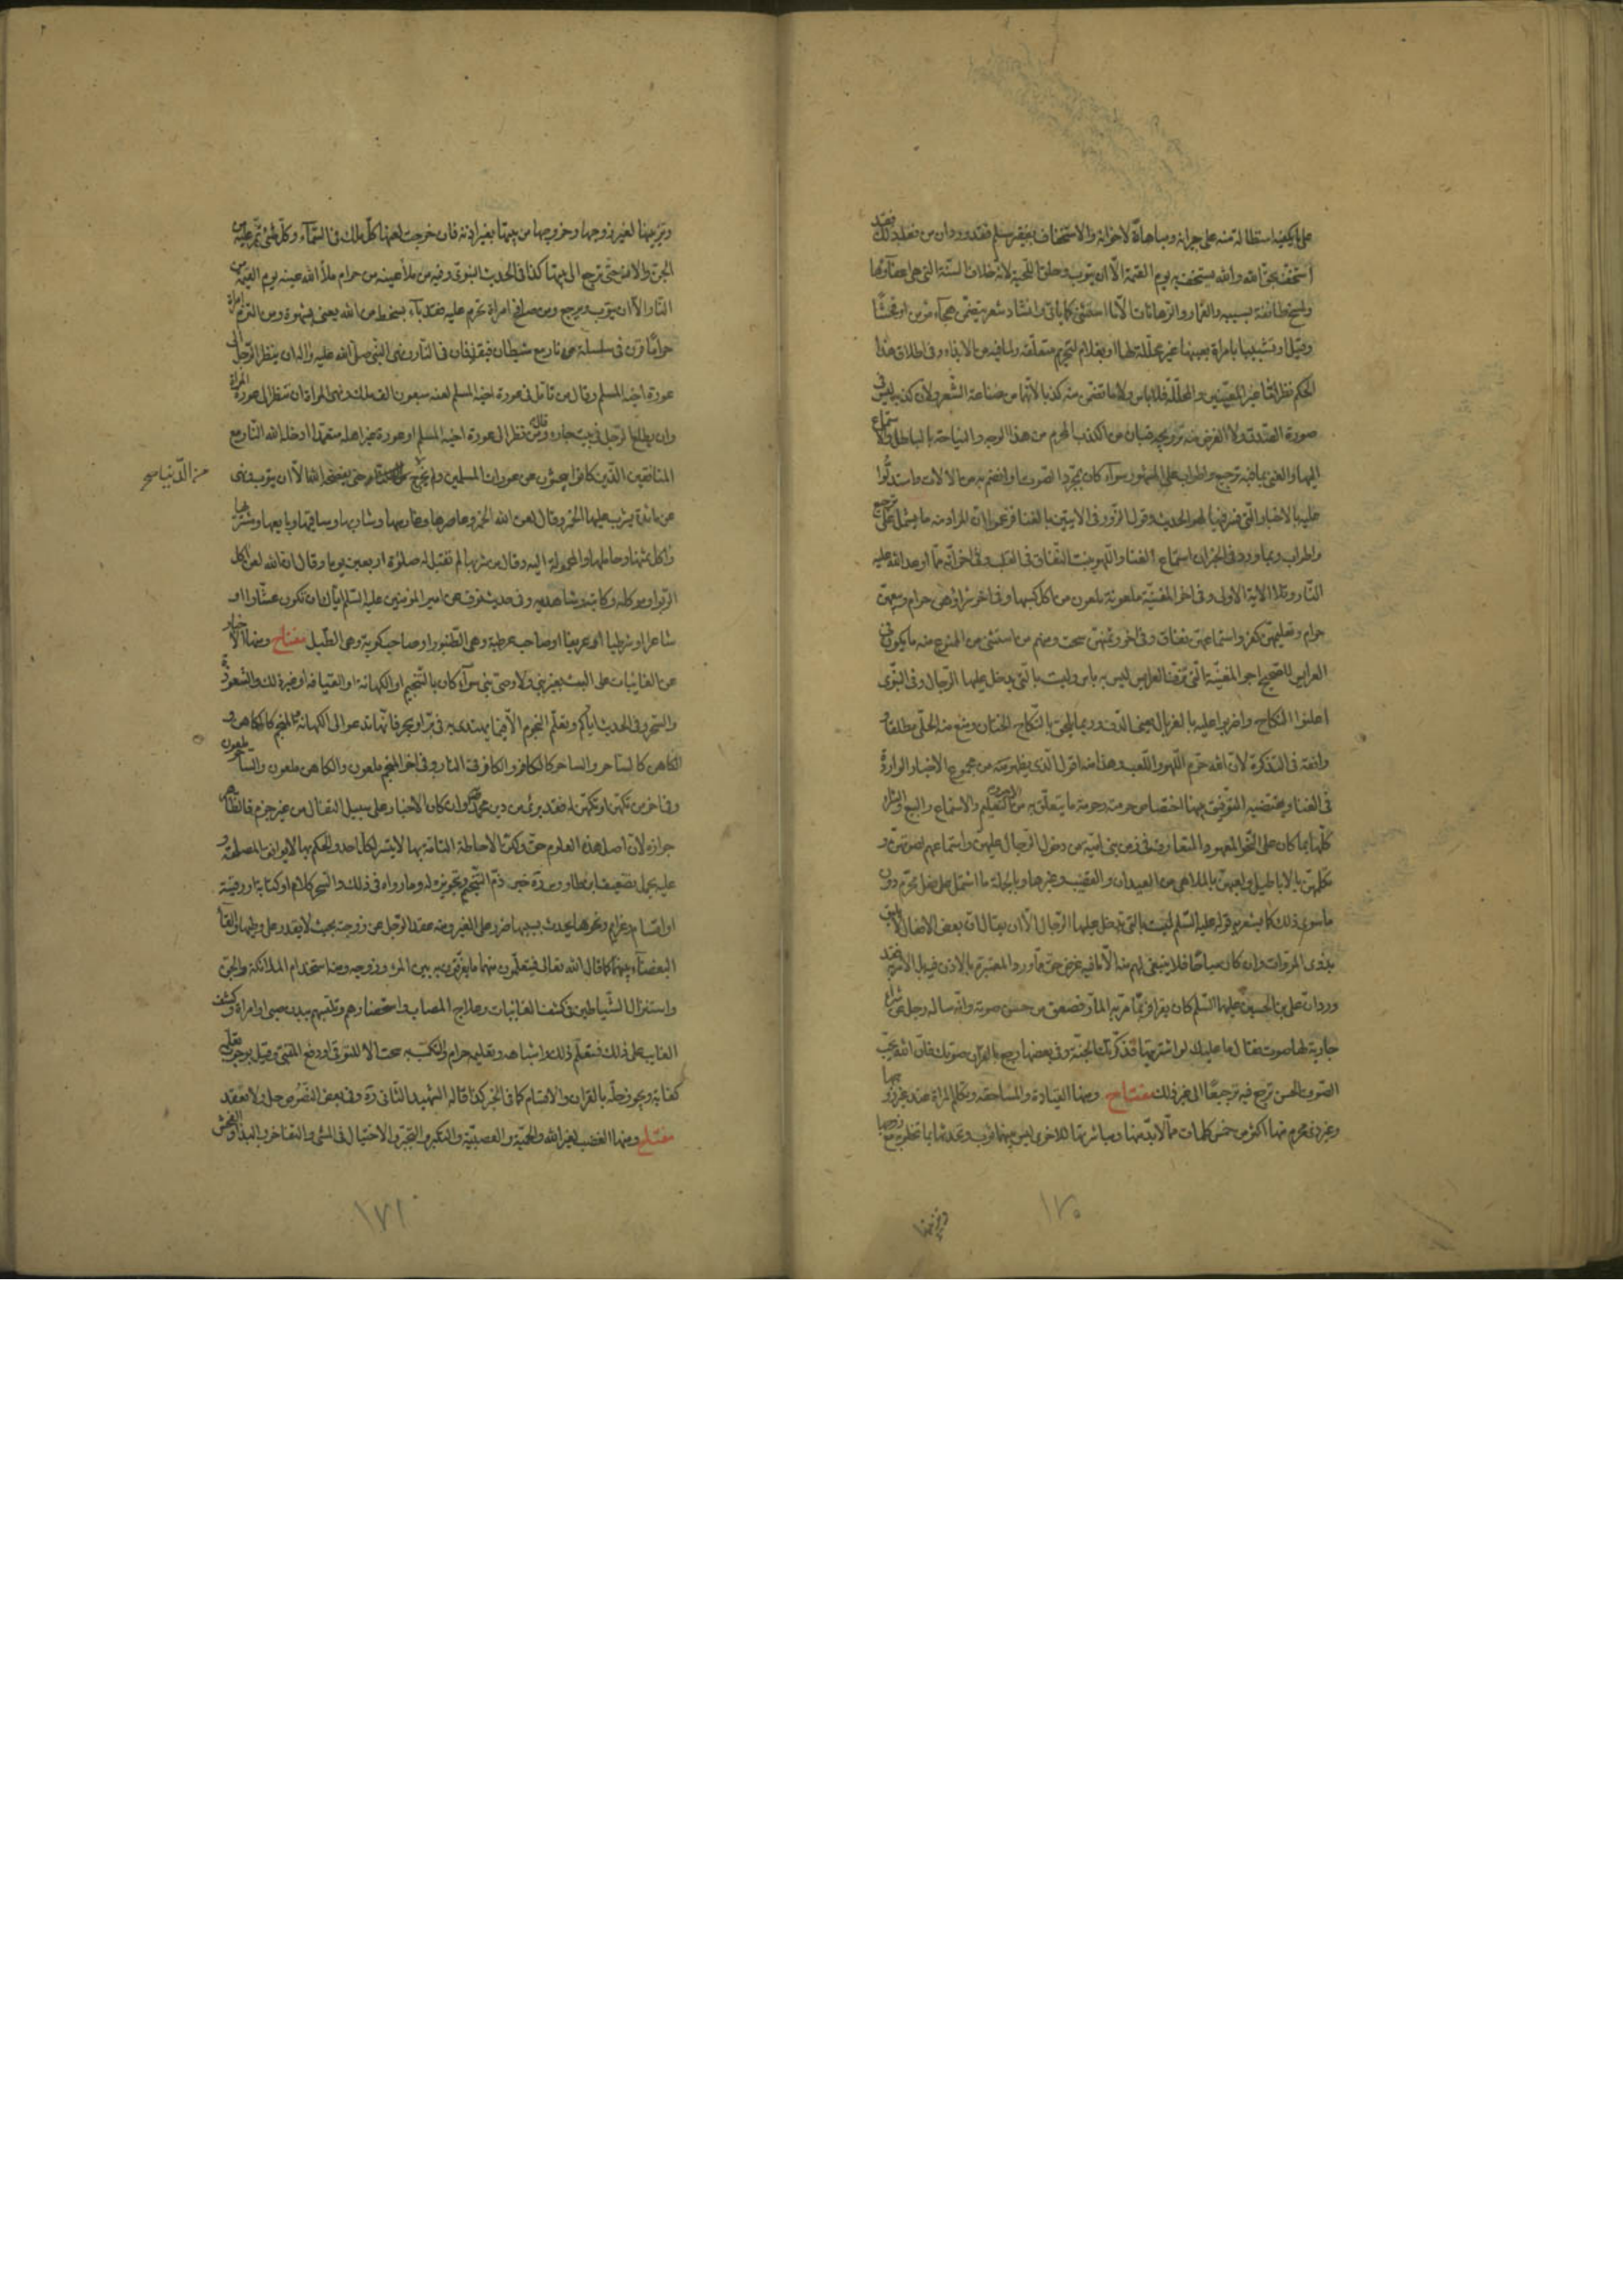 على ما يكفيه استطالة منه على جيرانه ومباهاة لاخوانه والاستخفاف بفقير مسلم فقد ورد ان من فعل ذلك فقد
استخف بحق الله والله يستخف به يوم القيمة الا ان يتوب وحلق اللحية لانه خلاف السنة التى هى اعفاؤها
بسببه والقمار والرهانات الا ما استثنى كما ياتى وانشاد شعر يتضمن هجاء مؤمن او فحشا
وتشبيبا بامراة بعينها غير محللة لها او بغلام لتحريم متعلقه ولما فيه من الايذاء وفى اطلاق هذا
الحكم نظر اما غير المعينين والمحللة فلا باس ولا ما تضمن منه كذبا لانها من صناعة الشعر ولان كذبه ليس فى
صورة الصدق ولا الغرض منه ترويجه فبان من الكذب المحرم من هذا الوجه والنياحة بالباطل واستماع
اليها والغنى بما فيه ترجيع واطراب على المشهور سواء كان بمجرد الصوت او انضم به من الالات واستدلوا
عليه بالاخبار التى فسر فيها لهو الحديث وقول الزور فى الايتين بالغنا فزعموا ان المراد منه ما يشمل على ترجيع
واطراب وبما ورد فى الخبر ان استماع الغنا واللهو ينبت النفاق فى القلب وفى اخر انه مما اوعد الله عليه
النار وتلا الاية الاولى وفى اخر المغنية ملعونة ملعون من اكل كسبها وفى اخر شراؤهن حرام وبيعهن
حرام وتعليمهن كفر واستماعهن نفاق وفى اخر وثمنهن سحت ومنهم من استثنى من الممنوع منه ما يكون فى
العرايس للصحيح اجر المغنية التى تزف العرايس ليس به باس وليست بالتى يدخل عليها الرجال وفى النبوى
اعلنوا النكاح واضربوا عليه بالغربال يعنى الدف وربما يلحق بالنكاح الختان ومنع منه الحلى مطلقا و
وافقه فى التذكرة لان الله حرم اللهو واللعب وهذا منه اقول الذى يظهر منه من مجموع الاخبار الواردة
فى الغنا ويقتضيه التوفيق بينها اختصاص حرمته وحرمة ما يتعلق به من التعليم والاستماع والبيع والشراء
كلها بما كان على النحو المعهود المتعارف فى زمن بنى امية من دخول الرجال عليهن واستماعهم لصوتهن و
تكلمهن بالاباطيل ولعبهن بالملاهى من العيدان والقضيب وغيرها وبالجملة ما اشتمل على فعل محرم دون
ما سوى ذلك كما يشعر به قوله عليه السلم ليست بالتى يدخل عليها الرجال الا ان يقال ان بعض الافعال لا يليق
بذوى المروات وان كان مباحا فلا ينبغى لهم منه الا ما فيه غرض حق مما ورد المعتبر بالاذن فيه بل الامر به فقد
ورد ان على بن الحسين عليهما السلم كان يقرا فربما مر به المار فصعق من حسن صوته وانه ساله رجل عن شراء
جارية لها صوت فقال ما عليك لو اشتريتها فذكرتك الجنة وفى بعضها رجع بالقران صوتك فان الله يحب
الصوت الحسن ترجع فيه ترجيعا الى غير ذلك مفتاح ومنها القيادة والمساحقة وتكلم المراة عند غير زوجها
وغير ذى محرم منها اكثر من خمس كلمات مما لا بد منها ومباشرتها للاخرى ليس بينهما ثوب وتحدثها بما تخلو به مع زوجها
وتزينها
١٧٠
وتزينها لغير زوجها وخروجها من بيتها بغير اذنه فان خرجت لعنها كل ملك فى السماء وكل شئ تمر عليه من
الجن والانس حتى ترجع الى بيتها كذا فى الحديث النبوى وفيه من ملأ عينيه من حرام ملأ الله عينيه يوم القيمة من
النار الا ان يتوب ويرجع ومن صافح امراة تحرم عليه فقد باء بسخط من الله يعنى بشهوة ومن التزم امراة
حراما قرن فى سلسلة من نار مع شيطان فيقذفان فى النار ونهى النبى صلى الله عليه واله ان ينظر الرجل الى
عورة اخيه المسلم وقال من تامل فى عورة اخيه المسلم لعنه سبعون الف ملك ونهى المراة ان تنظر الى عورة المراة
وان يطلع الرجل فى بيت جاره وقال من نظر الى عورة اخيه المسلم او عورة غير اهله متعمدا ادخله الله النار مع
المنافقين الذين كانوا يبحثون عن عورات المسلمين ولم يخرج حتى يفضحه الله الا ان يتوب ونهى
من الدنيا صح
عن مائدة يشرب عليها الخمر وقال لعن الله الخمر وعاصرها وغارسها وشاربها وساقيها وبايعها ومشتريها
واكل ثمنها وحاملها والمحمولة اليه وقال من شربها لم تقبل له صلوة اربعين يوما وقال ان الله لعن اكل
الربوا وموكله وكاتبه وشاهديه وفى حديث نوف عن امير المؤمنين عليه السلم اياك ان تكون عشارا او
شاعرا او شرطيا او عريفا او صاحب عرطبة وهى الطنبور او صاحب كوبة وهى الطبل مفتاح ومنها الاخبار
عن الغايبات على البت بغير نبى ولا وصى نبى سواء كان بالتنجيم او الكهانة او القيافة او غير ذلك والشعوذة
والسحر وفى الحديث اياكم وتعلم النجوم الا فيما يهتدى به فى بر او بحر فانها تدعو الى الكهانة المنجم كالكاهن و
الكاهن كالساحر والساحر كالكافر والكافر فى النار وفى اخر المنجم ملعون والكاهن ملعون والساحر ملعون
وفى اخر من تكهن او تكهن له فقد برئ من دين محمد وان كان الاخبار على سبيل التفال من غير جزم فالظاهر
جوازه لان اصل هذه العلوم حق ولكن الاحاطة التامة بها لا يتيسر لكل احد والحكم بها لا يوافق المصلحة و
عليه يحمل تضعيف ابن طاووس ره خبر ذم التنجيم وتجويزه له وما رواه فى ذلك والسحر كلام او كتابة او رقية
او اقسام وعزايم ونحوها يحدث بسببها ضرر على الغير ومنه عقد الرجل عن زوجته بحيث لا يقدر على وطيها والقاء
البغضاء بينهما كما قال الله تعالى فيتعلمون منهما ما يفرقون به بين المرء وزوجه ومنه استخدام الملائكة والجن
واستنزال الشياطين فى كشف الغائبات وعلاج المصاب واستحضارهم وتلبسهم ببدن صبى او امراة وكشف
الغايب على ذلك فتعلم ذلك واشباهه وتعليمه حرام والتكسب به سحت الا للتوقى او دفع المتنبى وقيل بوجوب تعلمه
كفاية ويجوز حله بالقران والاقسام كما فى الخبر كذا قاله الشهيد الثانى ره وفى بعض النصوص حل ولا تعقد
مفتاح ومنها الغضب لغير الله والحمية والعصبية والتكبر والتجبر والاختيال فى المشى والتفاخر والبذاء والفحش
١٧١